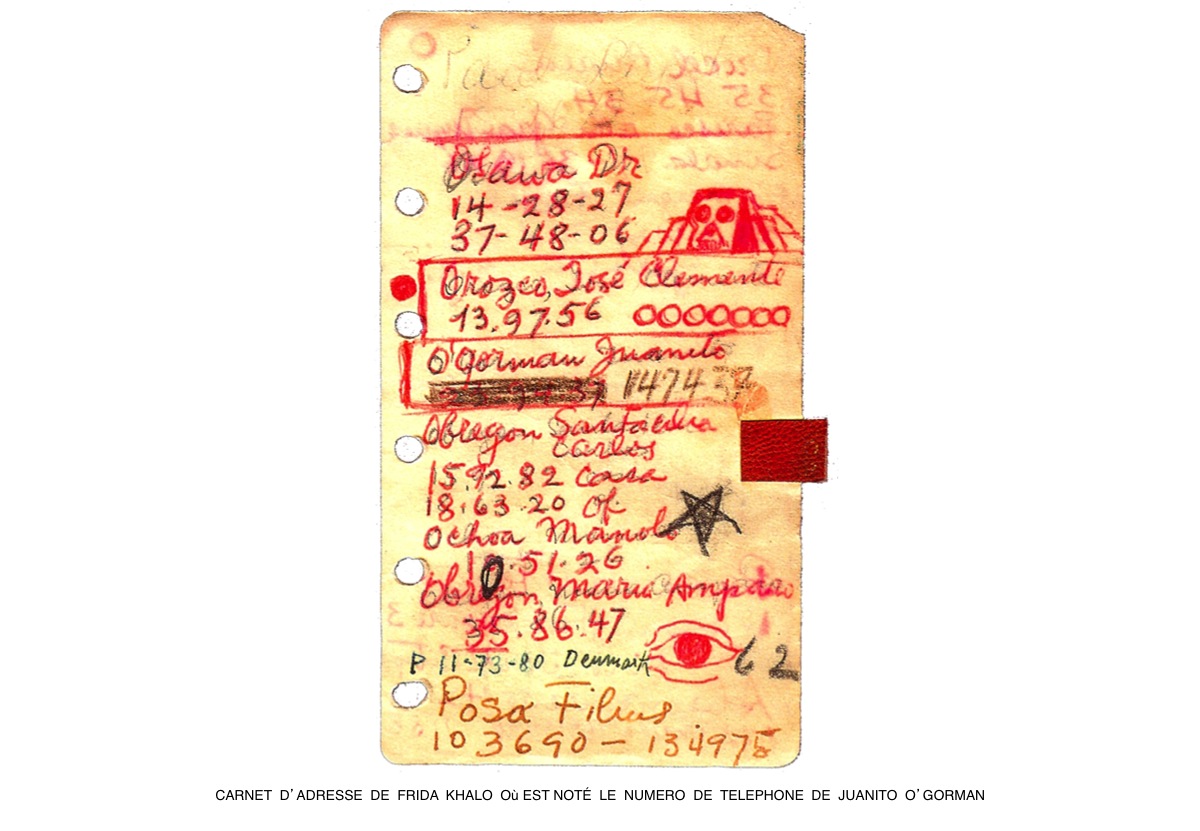 Osawa Dr
14-28-27
37-48-06
Orozco, José Clemente
13.97.56
O'Gorman Juanito
147437
Obregon Santacilia
Carlos
15.92.82 casa
18.63.20 Of.
Ochoa Manolo
10.51.26
Obregon Maria Amparo
35.86.47
62
P 11-73-80 Denmark
Posa Films
103690 - 134975
CARNET D'ADRESSE DE FRIDA KHALO Où EST NOTÉ LE NUMERO DE TELEPHONE DE JUANITO O'GORMAN